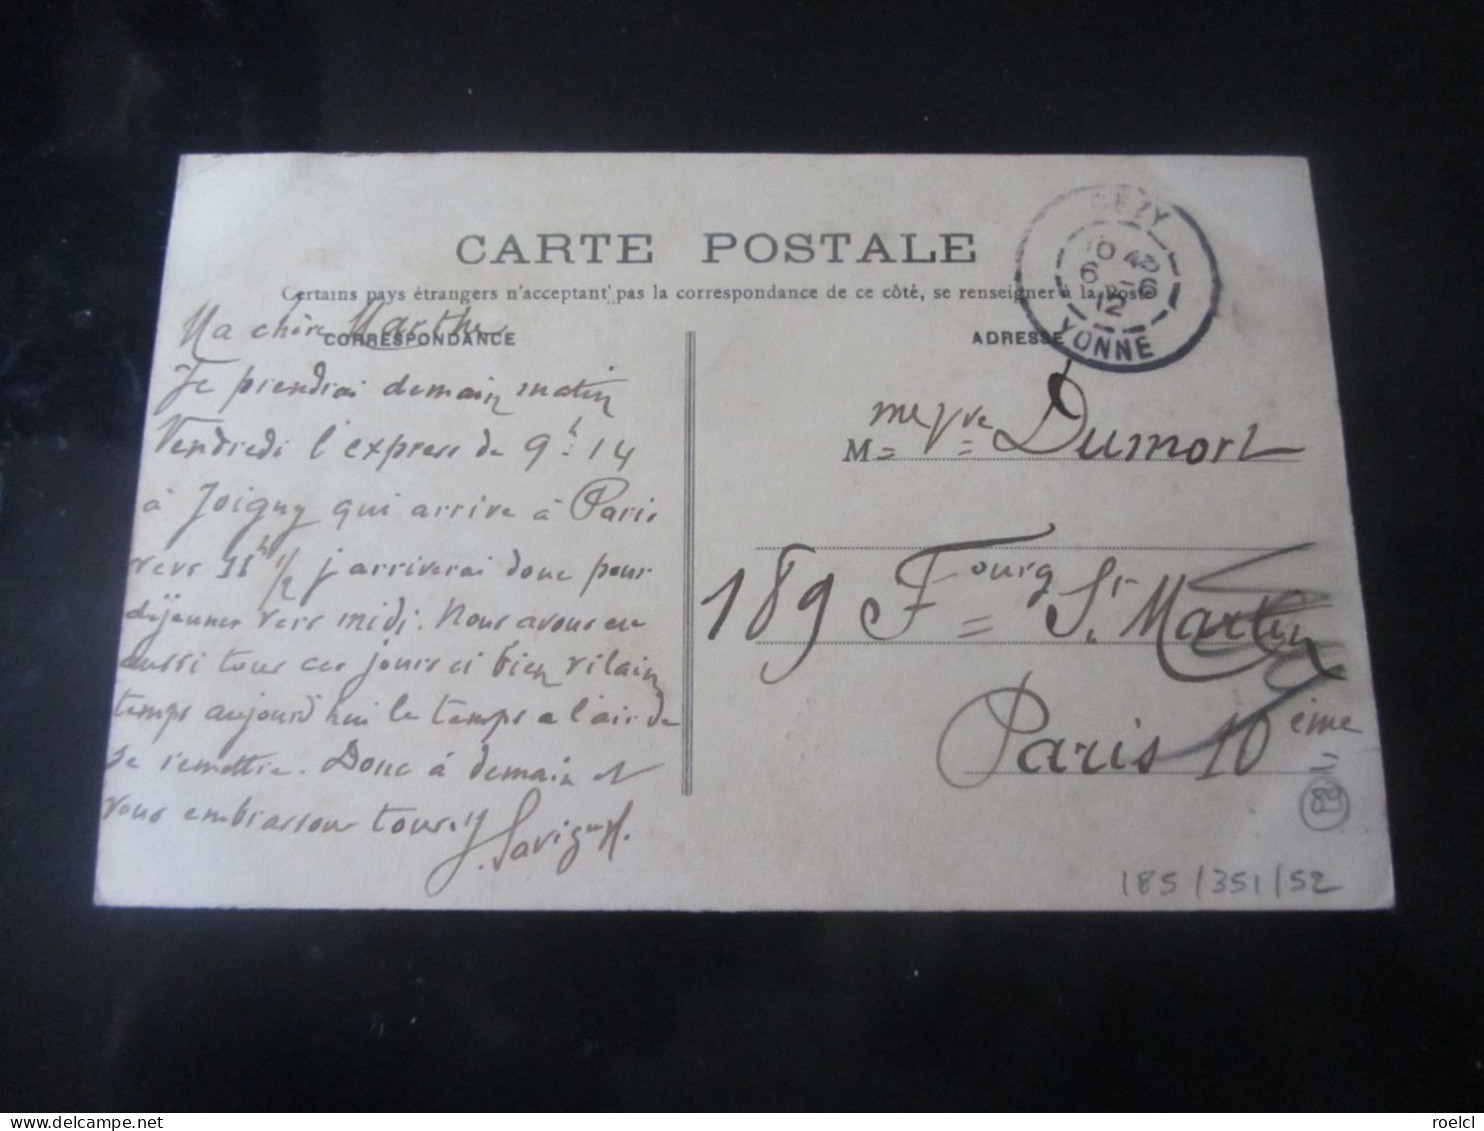 CARTE POSTALE
Certains pays étrangers n'acceptant pas la correspondance de ce côté, se renseigner à la Poste
CORRESPONDANCE
ADRESSE
CEZY
6 -6
12
YONNE
Ma chère Marthe
Je prendrai demain matin
Vendredi l'express de 9h 14
à Joigny qui arrive à Paris
vers 11h 1/2 j'arriverai donc pour
déjeuner vers midi. Nous avons eu
aussi tous ces jours ci bien vilain
temps aujourd'hui le temps a l'air de
se remettre. Donc à demain et
vous embrassons tous.
M me Vve Dumort
189 Fourg St Martin
Paris 10ème
89
185/351/52
roelcl